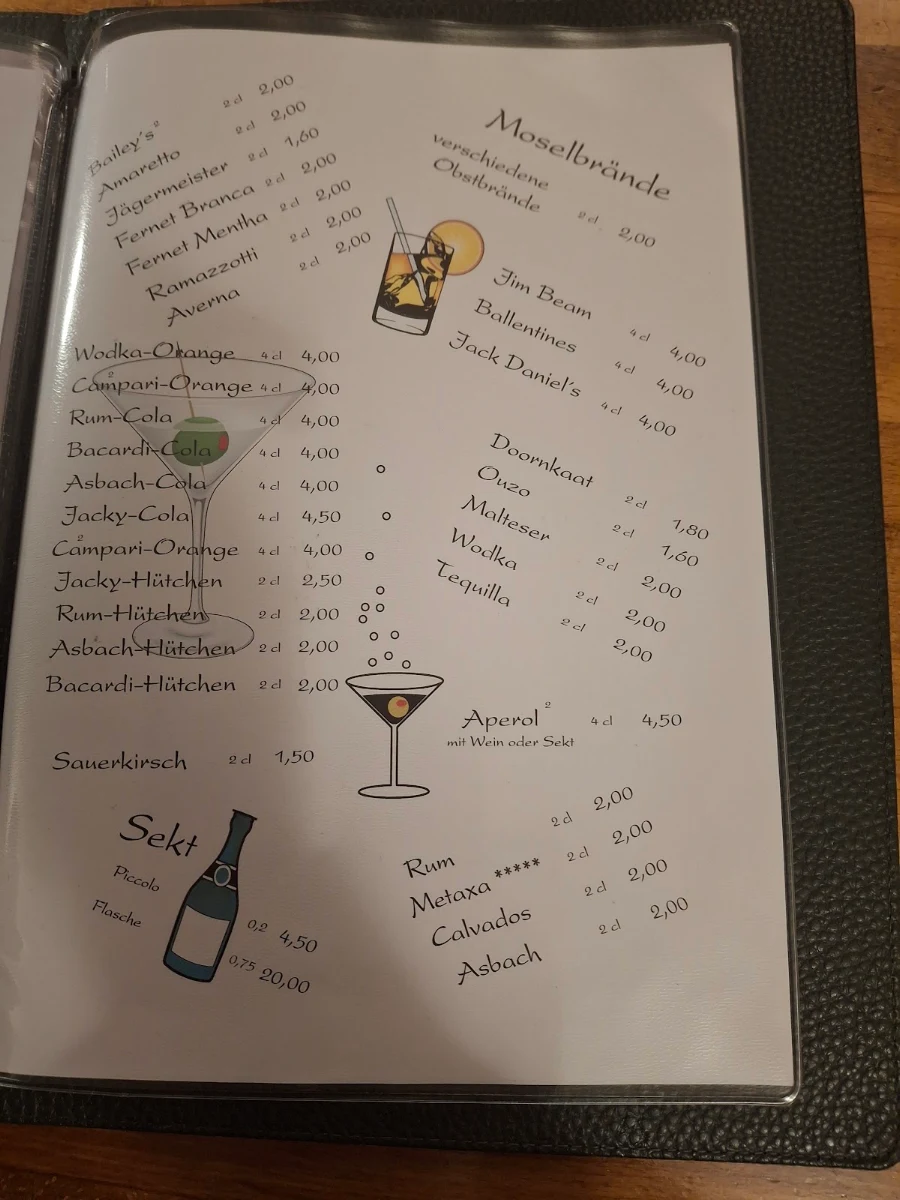 Bailey's² 2 cl 2,00
Amaretto 2 cl 2,00
Jägermeister 2 cl 1,60
Fernet Branca 2 cl 2,00
Fernet Mentha 2 cl 2,00
Ramazzotti 2 cl 2,00
Averna 2 cl 2,00
Wodka-Orange 4 cl 4,00
Campari²-Orange 4 cl 4,00
Rum-Cola 4 cl 4,00
Bacardi-Cola 4 cl 4,00
Asbach-Cola 4 cl 4,00
Jacky-Cola 4 cl 4,50
Campari²-Orange 4 cl 4,00
Jacky-Hütchen 2 cl 2,50
Rum-Hütchen 2 cl 2,00
Asbach-Hütchen 2 cl 2,00
Bacardi-Hütchen 2 cl 2,00
Sauerkirsch 2 cl 1,50
Sekt
Piccolo 0,2 4,50
Flasche 0,75 20,00
Moselbrände
verschiedene
Obstbrände 2 cl 2,00
Jim Beam 4 cl 4,00
Ballentines 4 cl 4,00
Jack Daniel's 4 cl 4,00
Doornkaat 2 cl 1,80
Ouzo 2 cl 1,60
Malteser 2 cl 2,00
Wodka 2 cl 2,00
Tequilla 2 cl 2,00
Aperol² 4 cl 4,50
mit Wein oder Sekt
Rum 2 cl 2,00
Metaxa ***** 2 cl 2,00
Calvados 2 cl 2,00
Asbach 2 cl 2,00